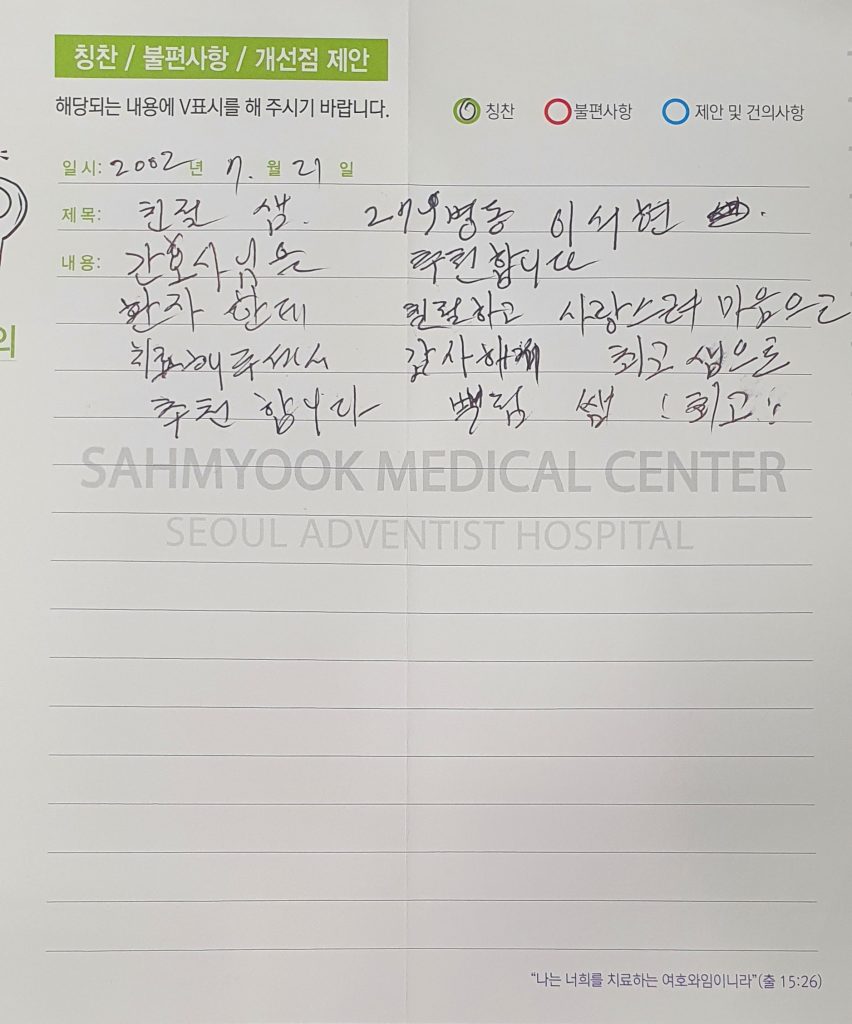 칭찬 / 불편사항 / 개선점 제안
해당되는 내용에 V표시를 해 주시기 바랍니다.
칭찬 불편사항 제안 및 건의사항
일시: 2002년 7. 월 21 일
제목: 친절 샘. 병동 이서현
내용: 간호사님을 추천합니다
환자 한테 친절하고 사랑스러 마음으로
치료해주셔서 감사해 최고 샘으로
추천 합니다 쌤 ! 최고!
SAHMYOOK MEDICAL CENTER
SEOUL ADVENTIST HOSPITAL
"나는 너희를 치료하는 여호와임이니라"(출 15:26)
의